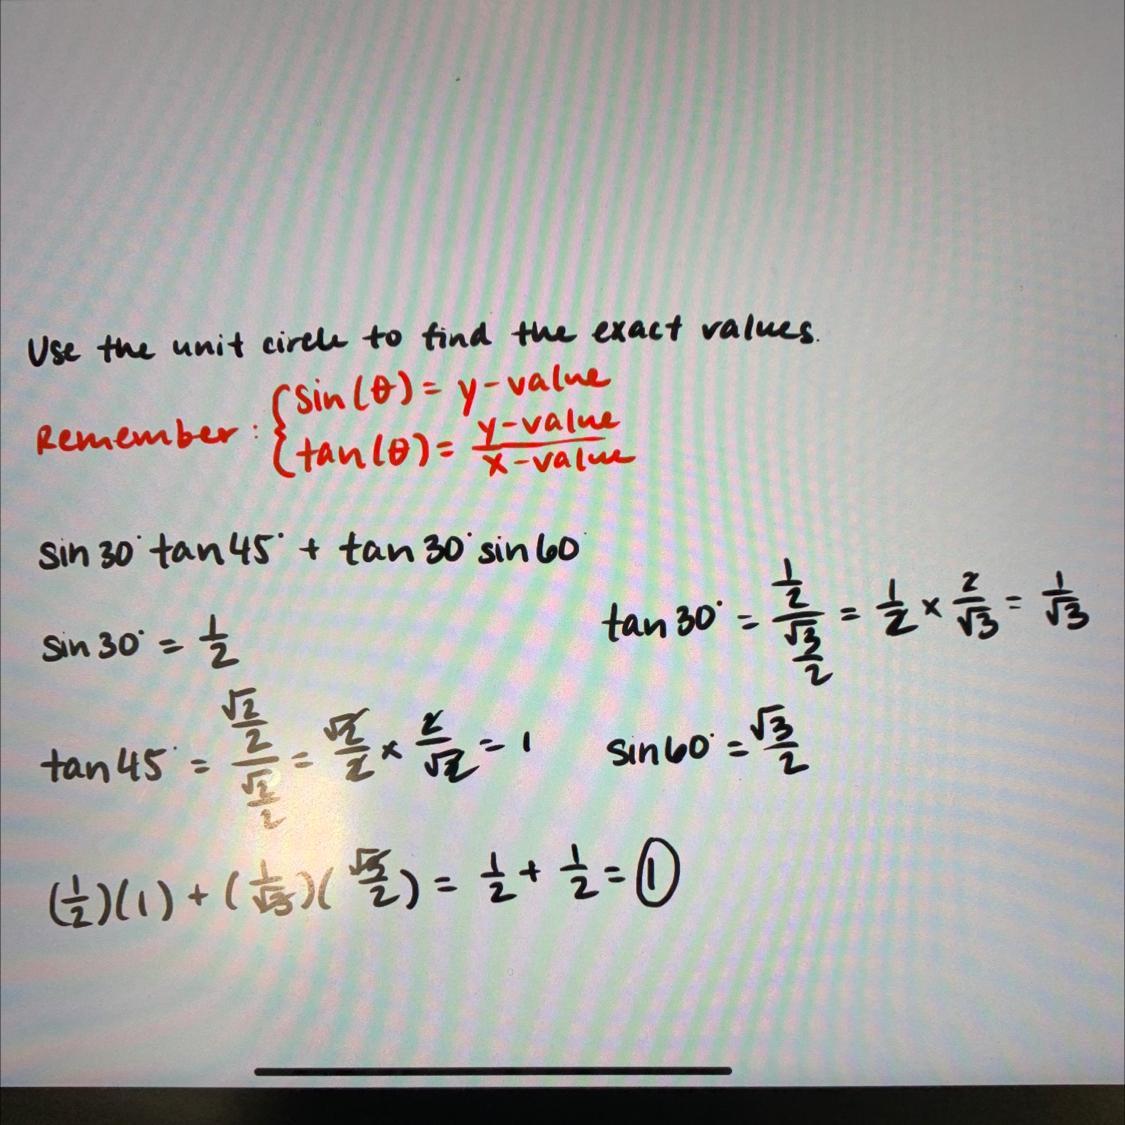 Use the unit circle to find the exact values.
Remember: { sin(θ) = y-value
tan(θ) = y-value / x-value
sin 30° tan 45° + tan 30° sin 60°
sin 30° = 1/2
tan 30° = (1/2)/(√3/2) = 1/2 × 2/√3 = 1/√3
tan 45° = (√2/2)/(√2/2) = √2/2 × 2/√2 = 1
sin 60° = √3/2
(1/2)(1) + (1/√3)(√3/2) = 1/2 + 1/2 = 1